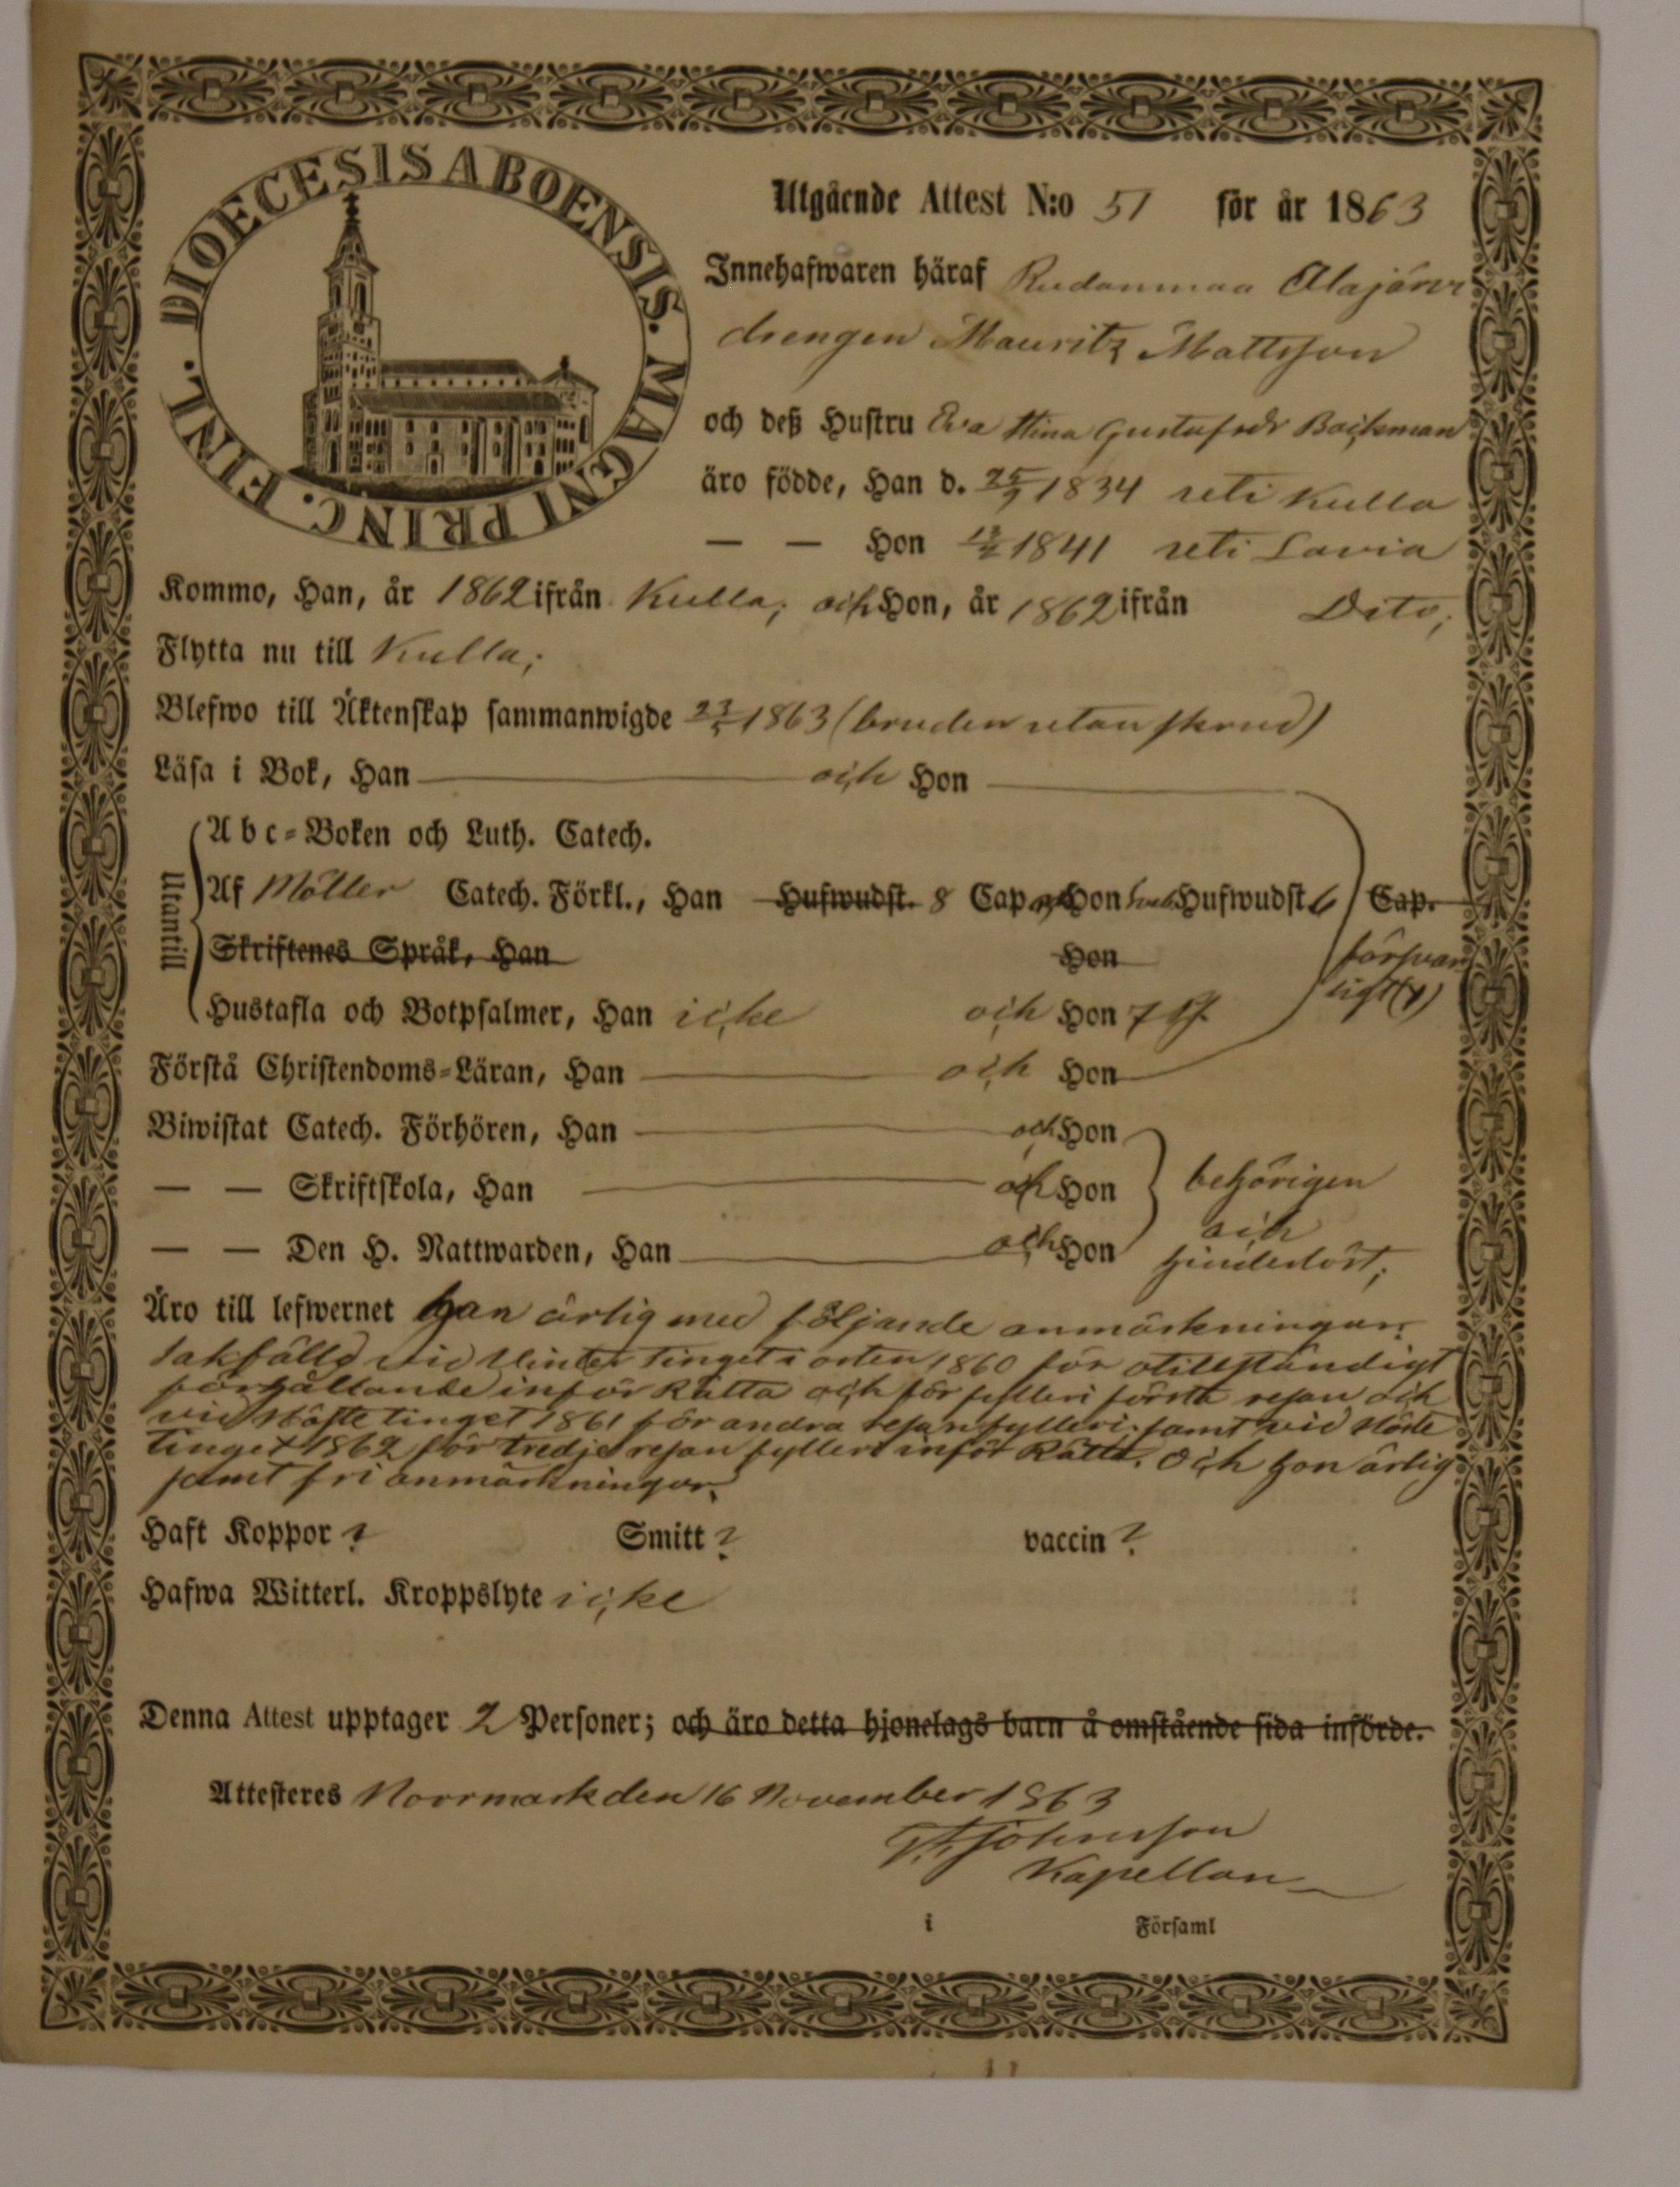 DIOECESIS ABOENSIS. MAGNI PRINC. FINL.
Utgående Attest N:o 51 för år 1863
Innehafwaren häraf Rudanmaa Alajärvi
drengen Mauritz Mattsson
och deß Hustru Eva Stina Gustafsdr Backman
äro födde, Han d. 25/9 1834 uti Kulla
— — Hon 1841 uti Lavia
Kommo, Han, år 1862 ifrån Kulla; och Hon, år 1862 ifrån Dito;
Flytta nu till Kulla;
Blefwo till Äktenskap sammanwigde 23/5 1863 (bruden utan skrud)
Läsa i Bok, Han och Hon
Utantill
Abc-Boken och Luth. Catech.
Af Möller Catech. Förkl., Han Hufwudst. 8 Cap och Hon Hufwudst. 6 Cap.
Skriftenes Språk, Han Hon
försvar
ligt (?)
Hustafla och Botpsalmer, Han icke och Hon 7
Förstå Christendoms-Läran, Han och Hon
Biwistat Catech. Förhören, Han och Hon
— — Skriftskola, Han och Hon
behörigen
— — Den H. Nattwarden, Han och Hon
och
hinderlöst;
Äro till lefwernet han ärlig med följande anmärkningar:
sakfälld vid Vinter Tinget i orten 1860 för otillständigt
förhållande inför Rätta och för fylleri första resan och
vid Höste tinget 1861 för andra resan fylleri; samt vid Höste
tinget 1862 för tredje resan fylleri inför Rätta. Och hon ärlig
samt fri anmärkningar.
Haft Koppor ? Smitt ? vaccin ?
Hafwa Witterl. Kroppslyte icke
Denna Attest upptager 2 Personer; och äro detta hjonelags barn å omstående sida införde.
Attesteres Norrmark den 16 November 1863
Johnsson
Kapellan
i Församl